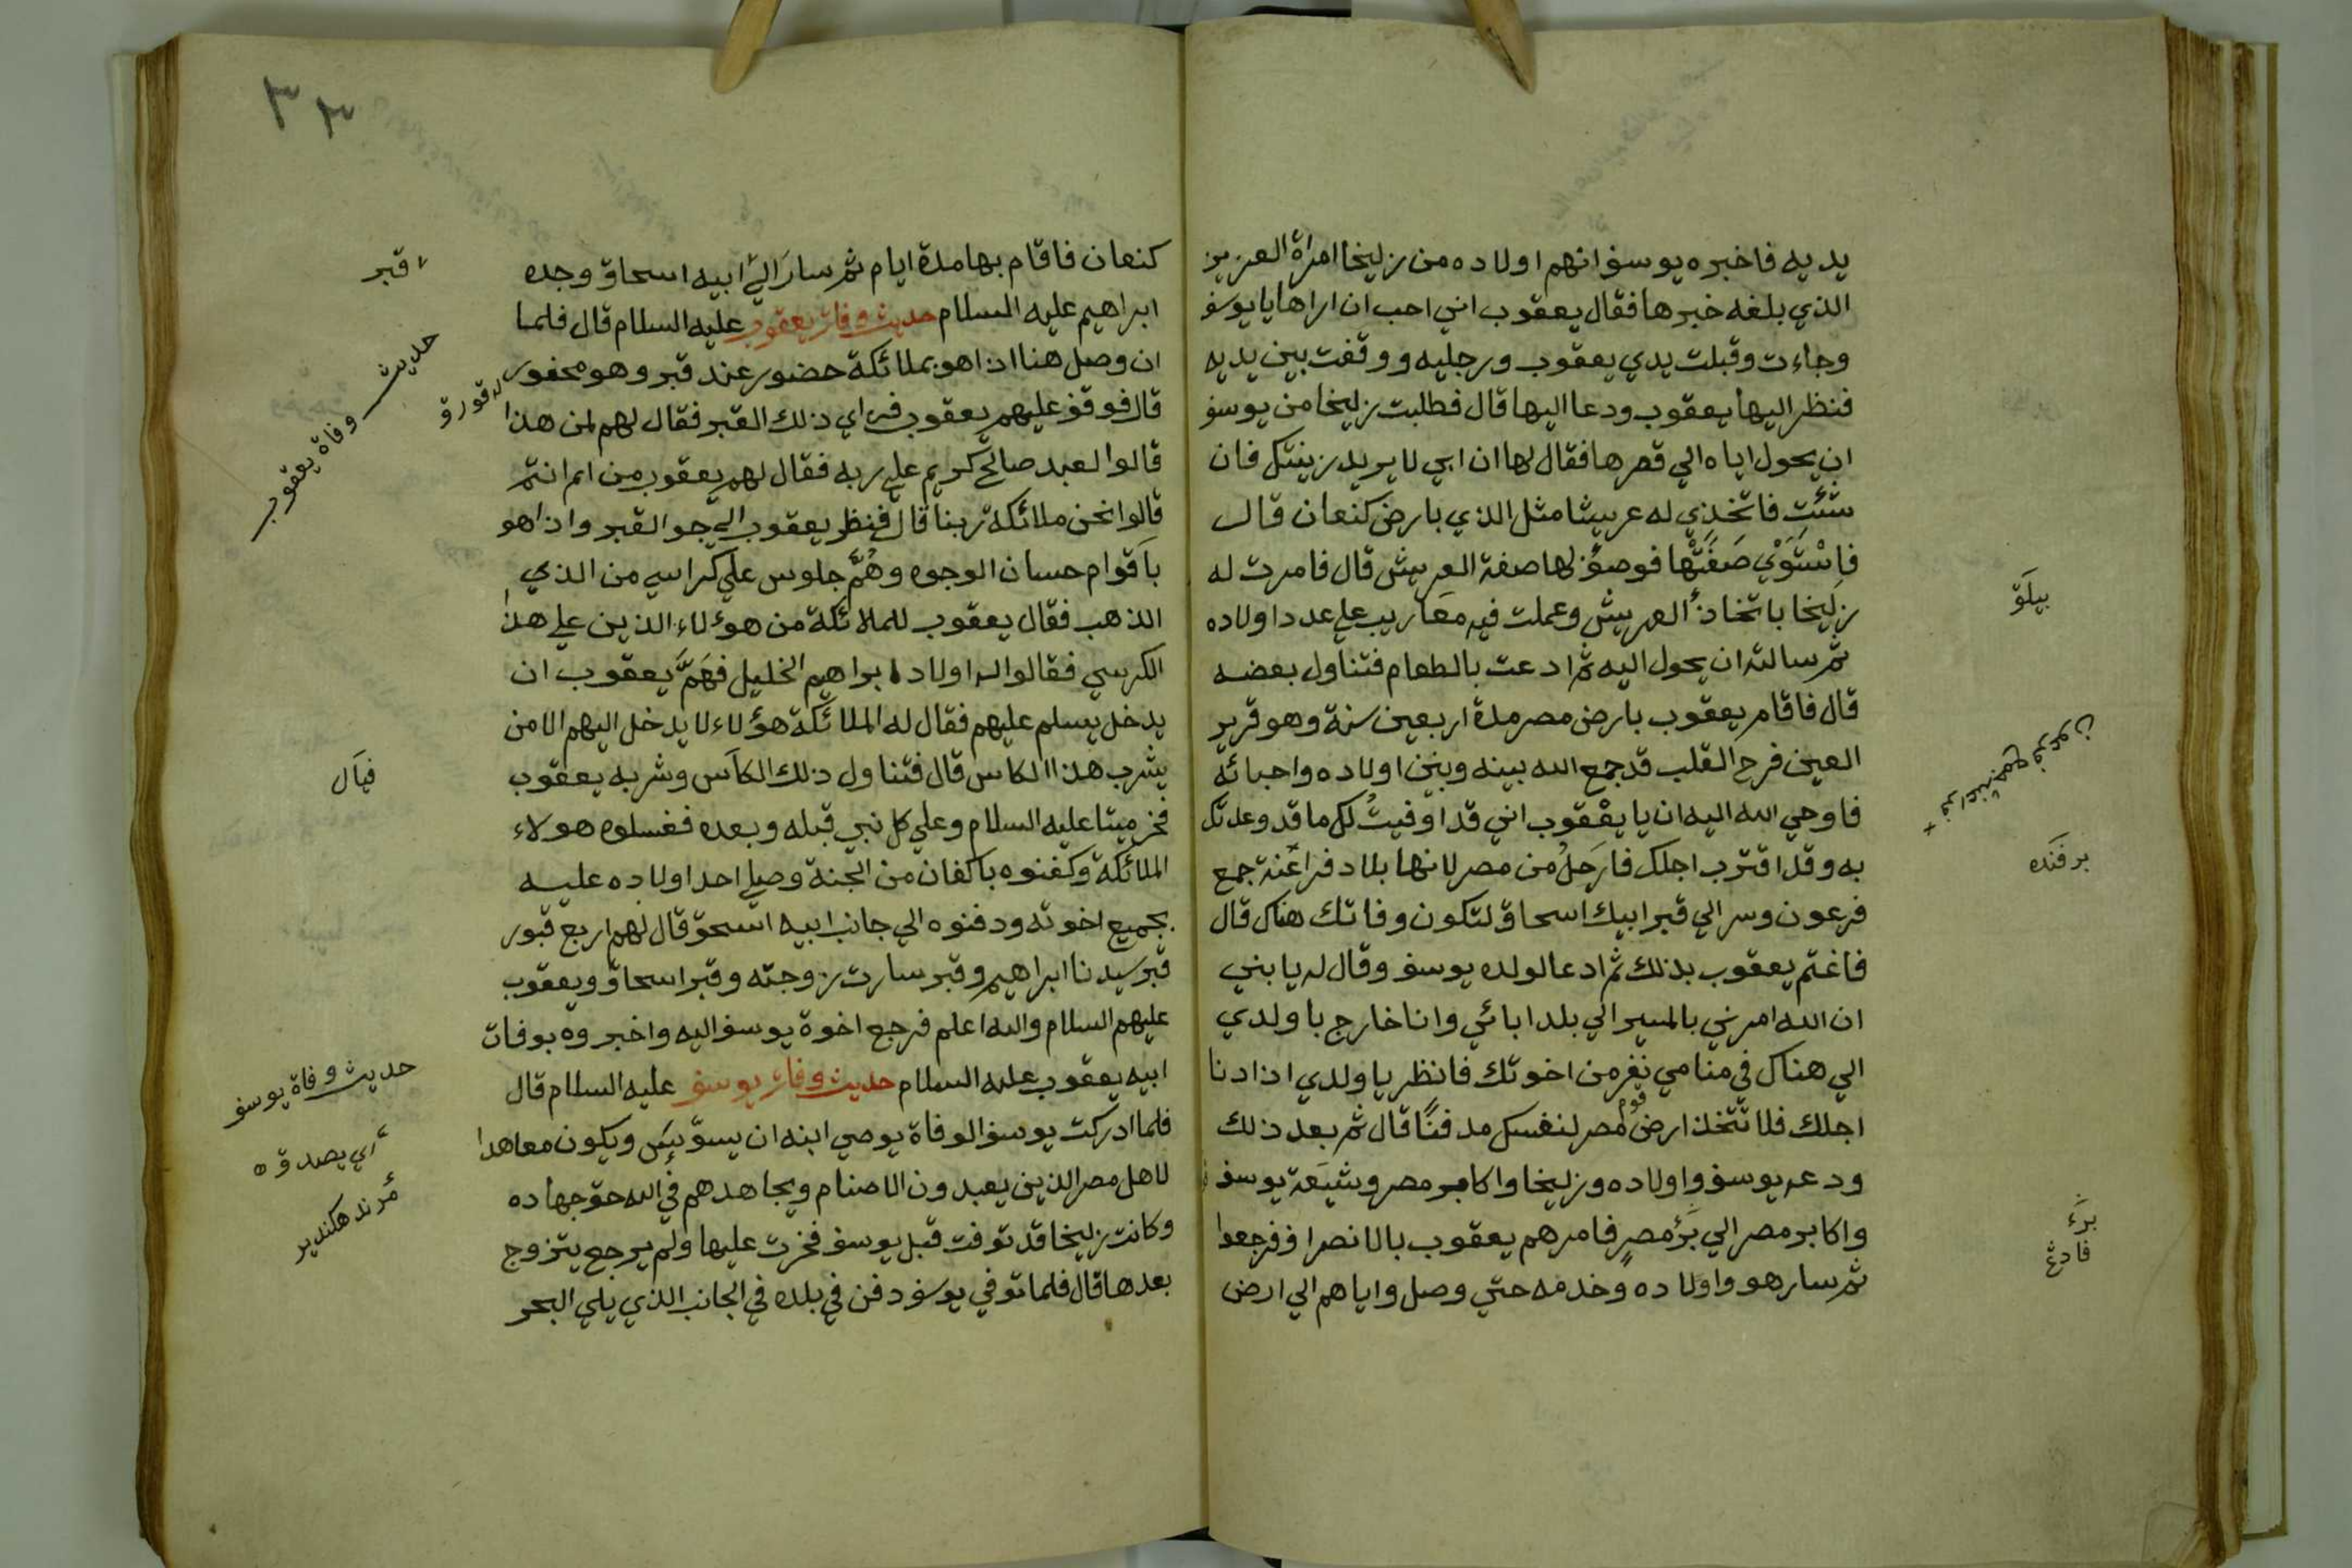 يديه فاخبره يوسف انهم اولاده من زليخا امراة العزيز
الذي بلغه خبرها فقال يعقوب اني احب ان اراها يا يوسف
وجاءت وقبلت يدي يعقوب ورجليه ووقفت بين يديه
فنظر اليها يعقوب ودعا اليها قال فطلبت زليخا من يوسف
ان يحول اياه الي قصرها فقال لها ان ابي لا يريد زينتك فان
شئت فاتخذي له عريشا مثل الذي بارض كنعان قال
فاستوي صفتها فوصف لها صفة العريش قال فامرت له
زليخا باتخاذ العريش وعملت فيه معاريب علي عدد اولاده
ثم سالته ان يحول اليه ثم ادعت بالطعام فتناول بعضه
قال فاقام يعقوب بارض مصر مدة اربعين سنة وهو قرير
العين فرح القلب قد جمع الله بينه وبين اولاده واحبائه
فاوحي الله اليه ان يا يعقوب اني قد اوفيت لك ما قد وعدتك
به وقد اقترب اجلك فارحل من مصر لانها بلاد فراعنة جمع
فرعون وسر الي قبر ابيك اسحاق لتكون وفاتك هناك قال
فاغتم يعقوب بذلك ثم ادعا لولده يوسف وقال له يا بني
ان الله امرني بالمسير الي بلد ابائي وانا خارج يا ولدي
الي هناك في منامي نفر من اخوتك فانظر يا ولدي اذا دنا
اجلك فلا تتخذ ارض قوم مصر لنفسك مدفنا قال ثم بعد ذلك
ودعه يوسف واولاده وزليخا واكابر مصر وشيعة يوسف
واكابر مصر الي بر مصر فامرهم يعقوب بالانصراف فرجعوا
ثم سار هو واولاده وخدمه حتي وصل واياهم الي ارض
بيلق
فراعنة جمع فرعون
برفنده
برء
فادغ
٣٣
كنعان فاقام بها مدة ايام ثم سار الي ابيه اسحاق وجده
ابراهيم عليه السلام حديث وفات يعقوب عليه السلام قال فلما
ان وصل هنا اذا هو بملائكة حضور عند قبر وهو محفور
قال فوقف عليهم يعقوب فراي ذلك القبر فقال لهم لمن هذا
قالوا لعبد صالح كريم علي ربه فقال لهم يعقوب من ام انتم
قالوا نحن ملائكة ربنا قال فنظر يعقوب الي جو القبر واذا هو
باقوام حسان الوجوه وهم جلوس علي كراسي من الذي
الذهب فقال يعقوب للملائكة من هؤلاء الذين علي هذا
الكرسي فقالوا له اولاد ابراهيم الخليل فهم يعقوب ان
يدخل يسلم عليهم فقال له الملائكة هؤلاء لا يدخل اليهم الا من
يشرب هذا الكاس قال فتناول ذلك الكاس وشربه يعقوب
فخر ميتا عليه السلام وعلي كل نبي قبله وبعده فغسلوه هولاء
الملائكة وكفنوه باكفان من الجنة وصلي احد اولاده عليه
بجميع اخوته ودفنوه الي جانب ابيه اسحق قال لهم اربع قبور
قبر سيدنا ابراهيم وقبر سارت زوجته وقبر اسحاق ويعقوب
عليهم السلام والله اعلم فرجع اخوة يوسف اليه واخبروه بوفات
ابيه يعقوب عليه السلام حديث وفات يوسف عليه السلام قال
فلما ادركت يوسف الوفاة يوصي ابنه ان يسوّيس ويكون معاهدا
لاهل مصر الذين يعبدون الاصنام ويجاهدهم في الله حق جهاده
وكانت زليخا قد توفت قبل يوسف فخرت عليها ولم يرجع يتزوج
بعدها قال فلما توفي يوسف دفن في بلده في الجانب الذي يلي البحر
قبر
حديث وفاة يعقوب
قورق
فيال
حديث وفاة يوسف
اي يصدق